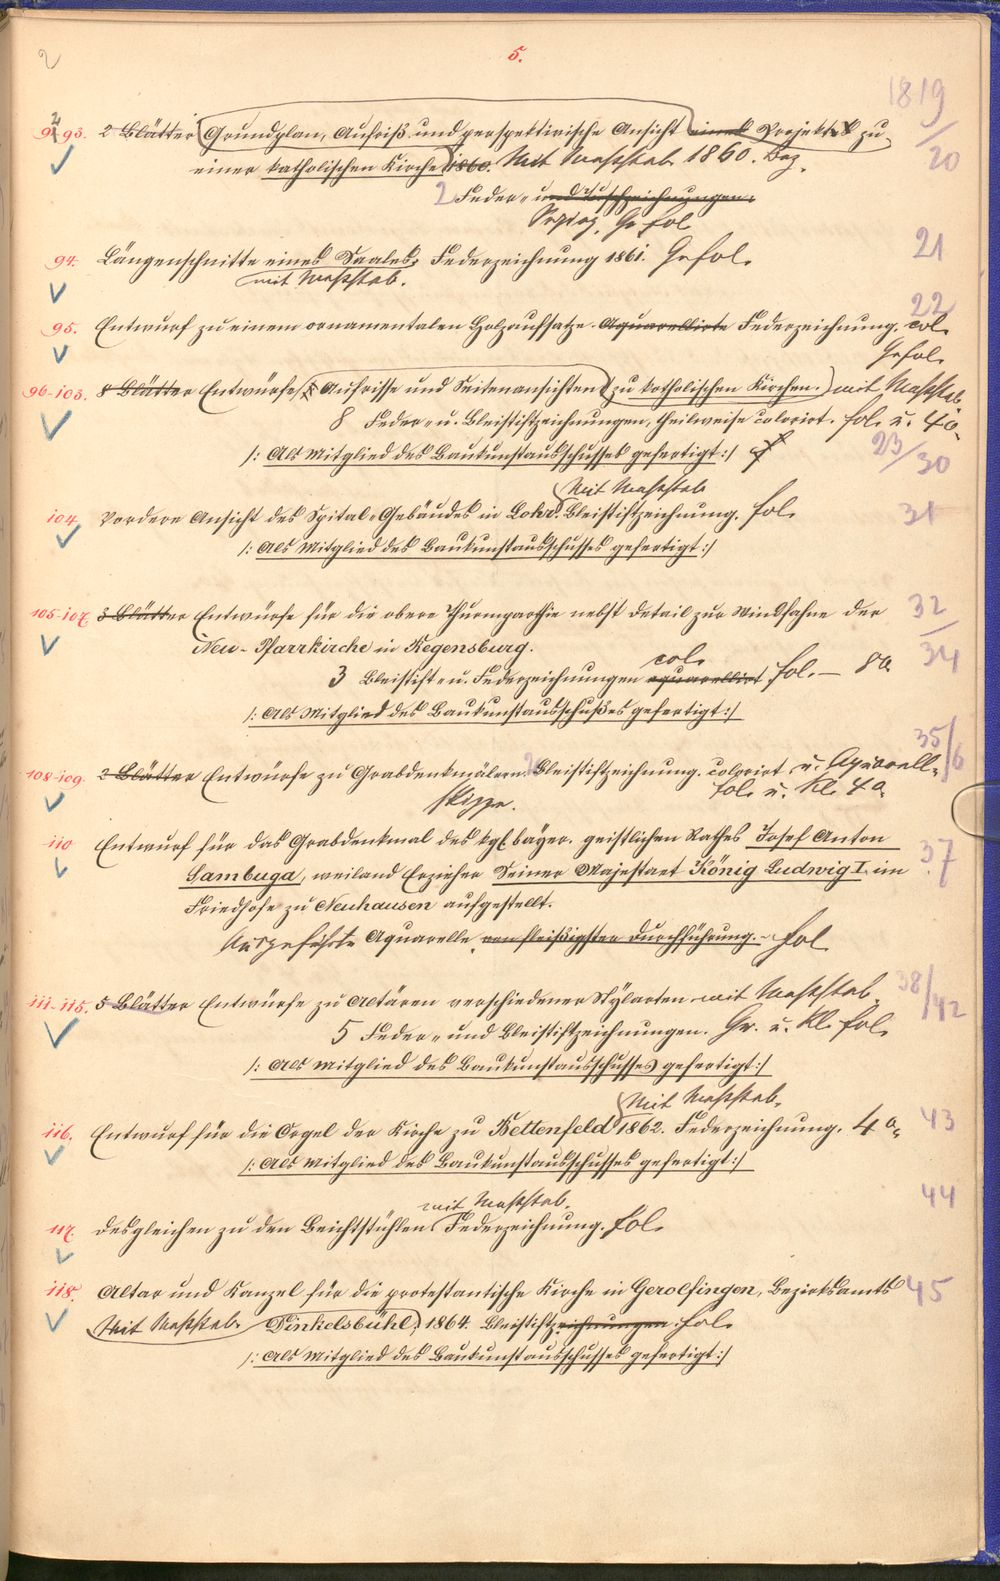 2
5.
1819
92 93. 2 Blätter Grundplan, Aufriß und perspektivische Ansicht eines Projektes zu
einer katholischen Kirche 1860. Mit Maßstab. 1860. Bez.
20
2 Feder- und Tuschzeichnungen.
Gr. fol
94. Längenschnitte eines Saales, Federzeichnung 1861. Gr fol.
21
mit Maßstab.
95. Entwurf zu einem ornamentalen Holzaufsatze. Aquarellirte Federzeichnung. col.
22
Gr fol.
96-103. 8 Blätter Entwürfe, Aufrisse und Seitenansichten zu katholischen Kirchen. mit Maßstab
8 Feder- u. Bleistiftzeichnungen, theilweise colorirt. fol. u. 4o.
/: Als Mitglied des Baukunstausschusses gefertigt :/
23/30
Mit Maßstab
104. Vordere Ansicht des Spital-Gebäudes in Lohr. Bleistiftzeichnung. fol.
31
/: Als Mitglied des Baukunstausschusses gefertigt :/
105-107. 3 Blätter Entwürfe für die obere Thurmparthie nebst Detail zur Windfahne der
32
Neu-Pfarrkirche in Regensburg.
34
col.
3 Bleistift- u. Federzeichnungen aquarellirt fol. — 8o.
/: Als Mitglied des Baukunstausschußes gefertigt :/
35/6
108-109. 2 Blätter Entwürfe zu Grabdenkmälern. 2 Bleistiftzeichnung. colorirt u. Aquarell-
skizze. fol. u. kl. 4o.
110 Entwurf für das Grabdenkmal des kgl. bayer. geistlichen Rathes Josef Anton
37
Sambuga, weiland Erzieher Seiner Majestaet König Ludwig I. im
Friedhofe zu Neuhausen aufgestellt.
Ausgeführte Aquarelle von fleißigster Durchführung. - fol
111-115. 5 Blätter Entwürfe zu Altären verschiedener Stylarten mit Maßstab.
38/42
5 Feder- und Bleistiftzeichnungen. Gr. u. kl. fol.
/: Als Mitglied des Baukunstausschusses gefertigt :/
Mit Maßstab.
116. Entwurf für die Orgel der Kirche zu Bettenfeld 1862. Federzeichnung. 4o.
43
/: Als Mitglied des Baukunstausschusses gefertigt :/
44
mit Maßstab.
117. Desgleichen zu den Beichtstühlen Federzeichnung. fol.
118. Altar und Kanzel für die protestantische Kirche in Gerolfingen, Bezirksamts
45
Mit Maßstab. Dinkelsbühl, 1864. Bleistiftzeichnungen. fol.
/: Als Mitglied des Baukunstausschusses gefertigt :/